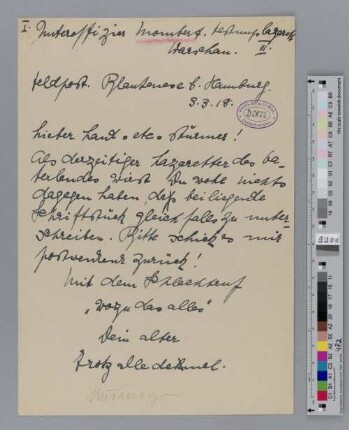 I. Unteroffizier Mombert. Festungslazarett
Warschau. II.
Feldpost. Blankenese b. Hamburg.
3.3.18.
D2822
Lieber Land-etc stürmer!
Als derzeitiger Lazaretter des Va-
terlandes wirst Du wohl nichts
dagegen haben, dß beiliegende
Schriftstück gleichfalls zu unter-
schreiben. Bitte schick es mir
postwendend zurück!
Mit dem Schlachtruf
"wozu das alles"
Dein alter
Trotzalledehmel.